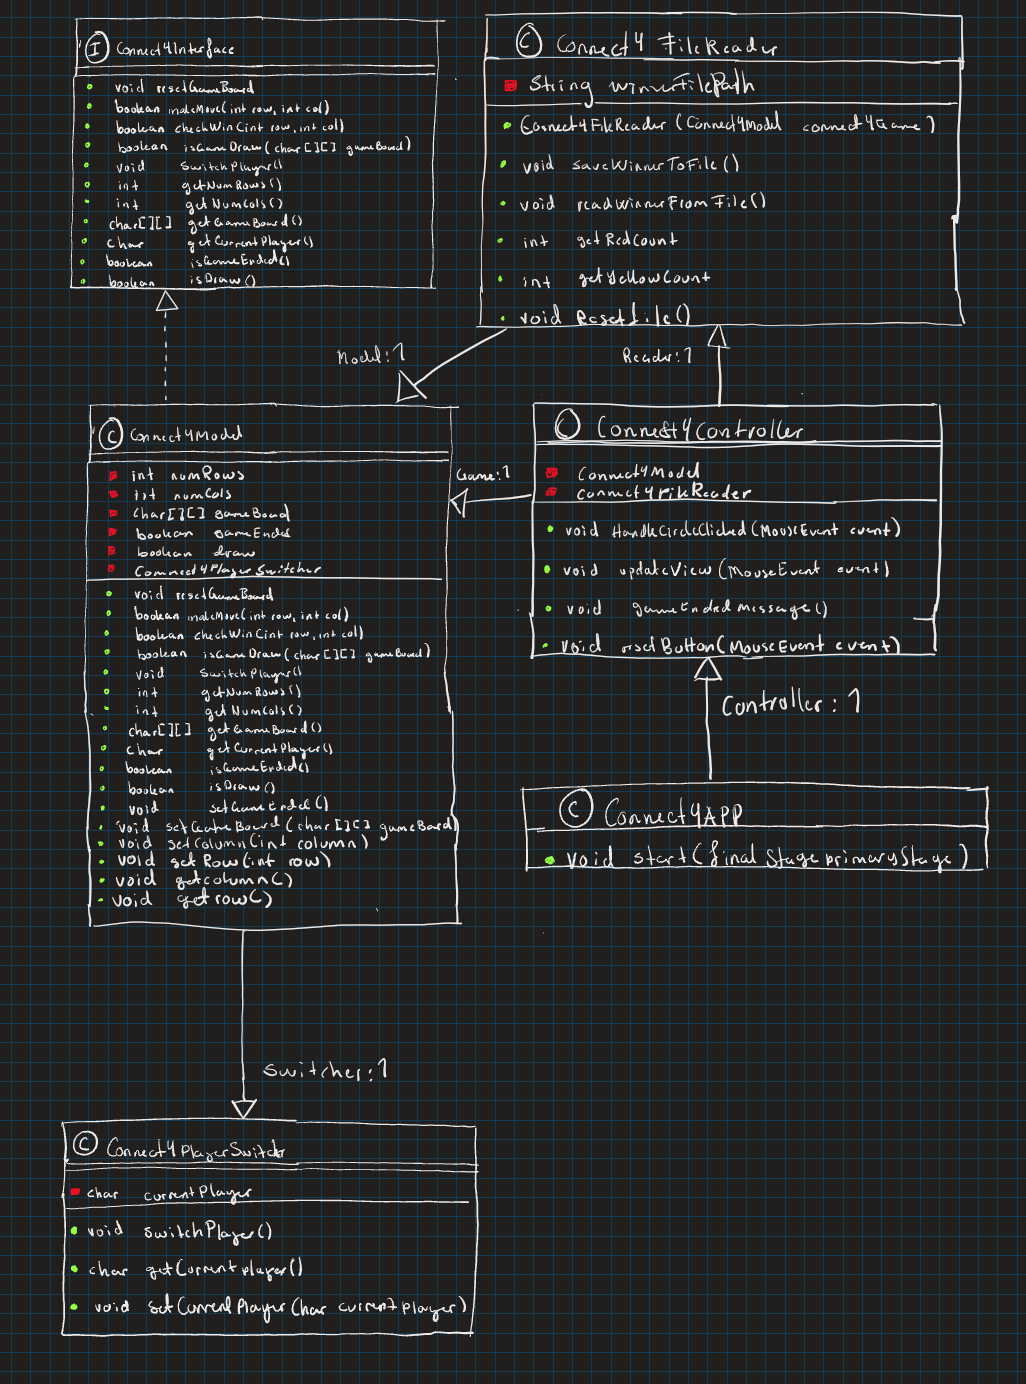 I Connect4Interface
void resetGameBoard
boolean makeMove(int row, int col)
boolean checkWin(int row, int col)
boolean isGameDraw(char[][] gameBoard)
void SwitchPlayer()
int getNumRows()
int getNumCols()
char[][] getGameBoard()
char getCurrentPlayer()
boolean isGameEnded()
boolean isDraw()
C Connect4 FileReader
String winnerFilePath
Connect4FileReader (Connect4Model connect4Game)
void saveWinnerToFile()
void readWinnerFromFile()
int getRedCount
int getYellowCount
void Resetfile()
Model:1
Reader:1
C Connect4Model
int numRows
int numCols
char[][] gameBoard
boolean gameEnded
boolean draw
Connect4PlayerSwitcher
void resetGameBoard
boolean makeMove(int row, int col)
boolean checkWin(int row, int col)
boolean isGameDraw(char[][] gameBoard)
void SwitchPlayer()
int getNumRows()
int getNumCols()
char[][] getGameBoard()
char getCurrentPlayer()
boolean isGameEnded()
boolean isDraw()
void setGameEnded()
void setGameBoard(char[][] gameBoard)
void setColumn(int column)
void setRow(int row)
void getcolumn()
void getrow()
Game:1
C Connect4Controller
Connect4Model
connect4FileReader
void HandleCircleClicked(MouseEvent event)
void updateView(MouseEvent event)
void gameEndedMessage()
void resetButton(MouseEvent event)
Controller:1
C Connect4APP
void start(final Stage primaryStage)
Switcher:1
C Connect4PlayerSwitcher
char currentPlayer
void switchPlayer()
char getCurrentplayer()
void setCurrentPlayer(char currentplayer)